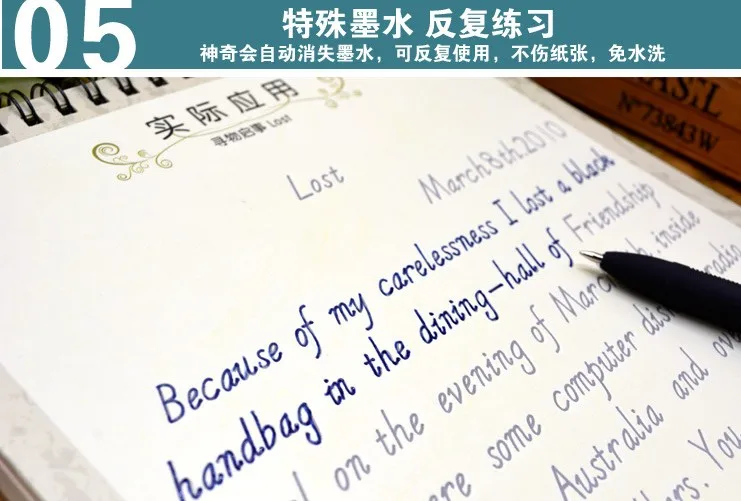 05
特殊墨水 反复练习
神奇会自动消失墨水，可反复使用，不伤纸张，免水洗
实际应用
寻物启事 Lost
Lost
March 8th. 2010
Because of my carelessness I lost a black
handbag in the dining-hall of Friendship
on the evening of inside
some computer
Australia and
You
Nº73843W